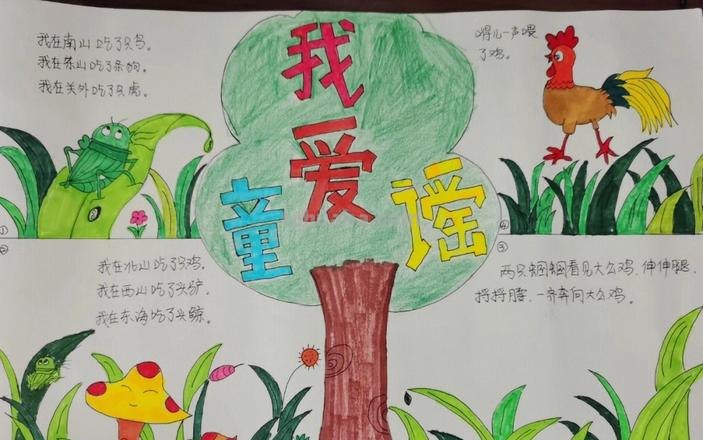 我
爱
童谣
我在南山吃了只鸟。
我在东山吃了条狗。
我在关外吃了只虎。
①
嘚儿一声喂
了鸡。
④
②
我在北山吃了只鸡,
我在西山吃了头驴,
我在东海吃了头鲸。
③
两只蝈蝈看见大公鸡,伸伸腿,
捋捋腰,一齐奔向大公鸡。